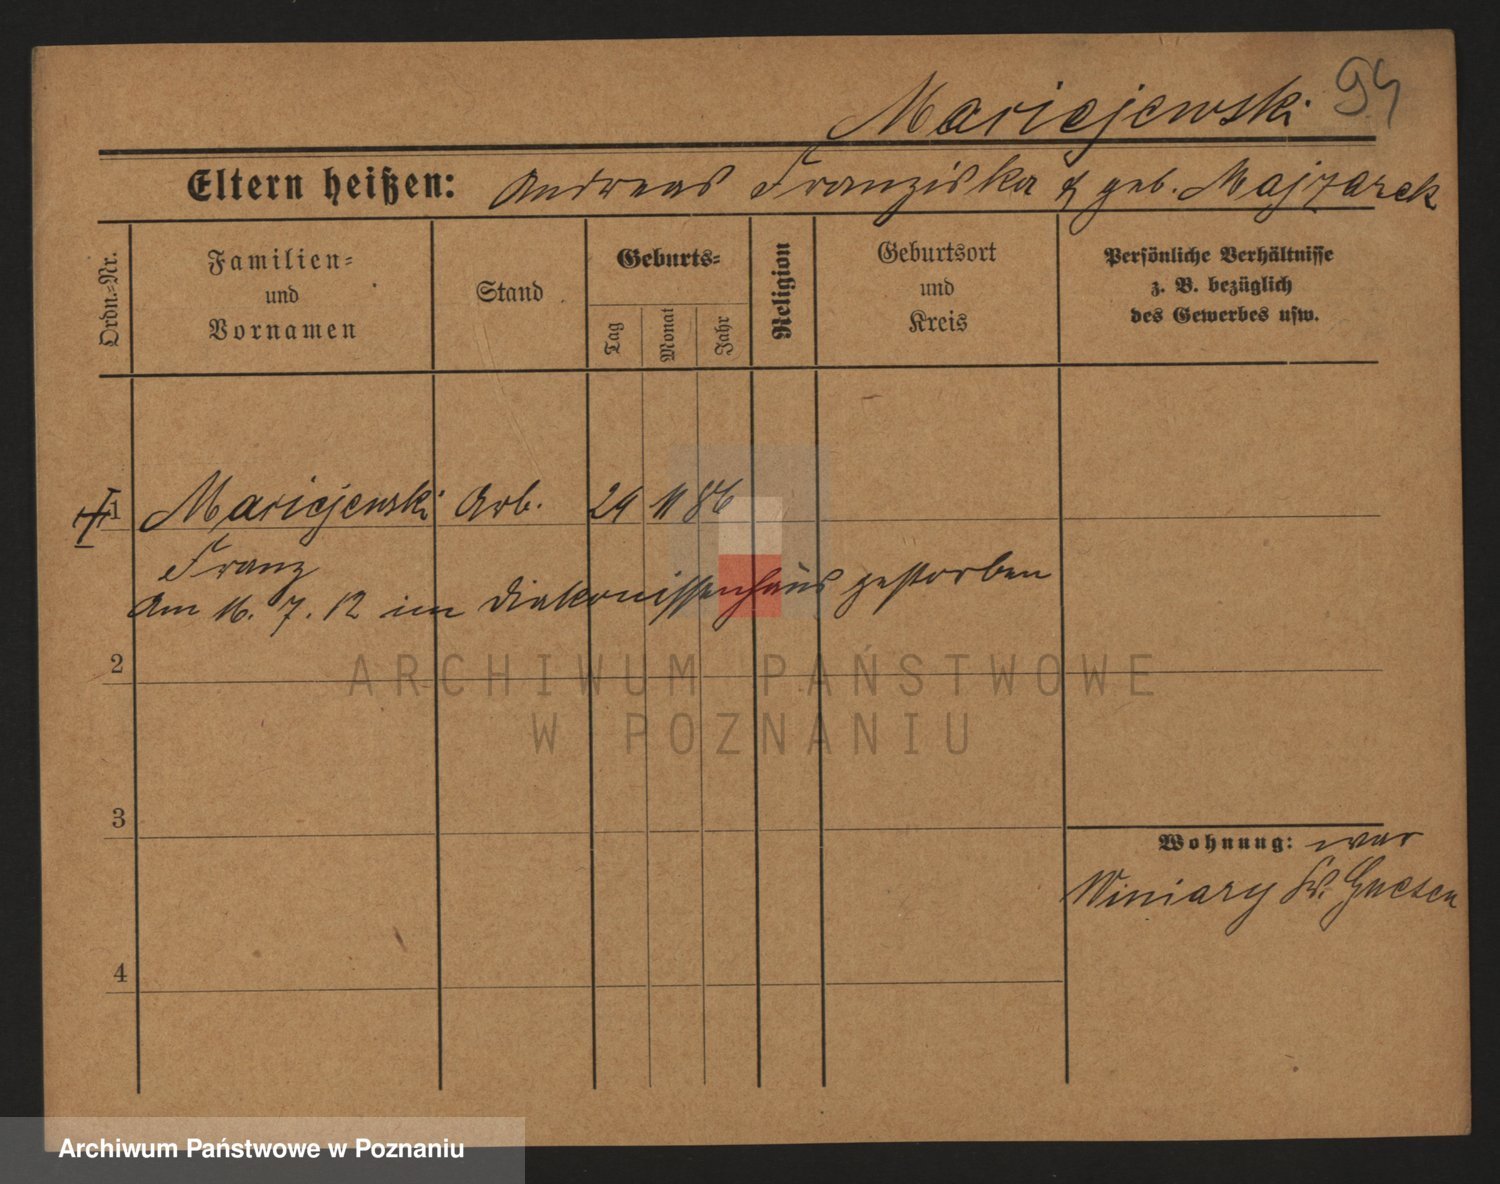 94
Maricjewski
Eltern heißen: Andreas Franziska geb. Majzarek
Ordn.=Nr.
Familien=
und
Vornamen
Stand
Geburts=
Tag
Monat
Jahr
Religion
Geburtsort
und
Kreis
Persönliche Verhältnisse
z. B. bezüglich
des Gewerbes usw.
1 Maricjewski Arb. 29 11 86
Franz
Am 16. 7. 12 im Diakonissenhaus gestorben
2
ARCHIWUM PAŃSTWOWE
W POZNANIU
3
Wohnung: war
Winiary Kr. Gnesen
4
Archiwum Państwowe w Poznaniu